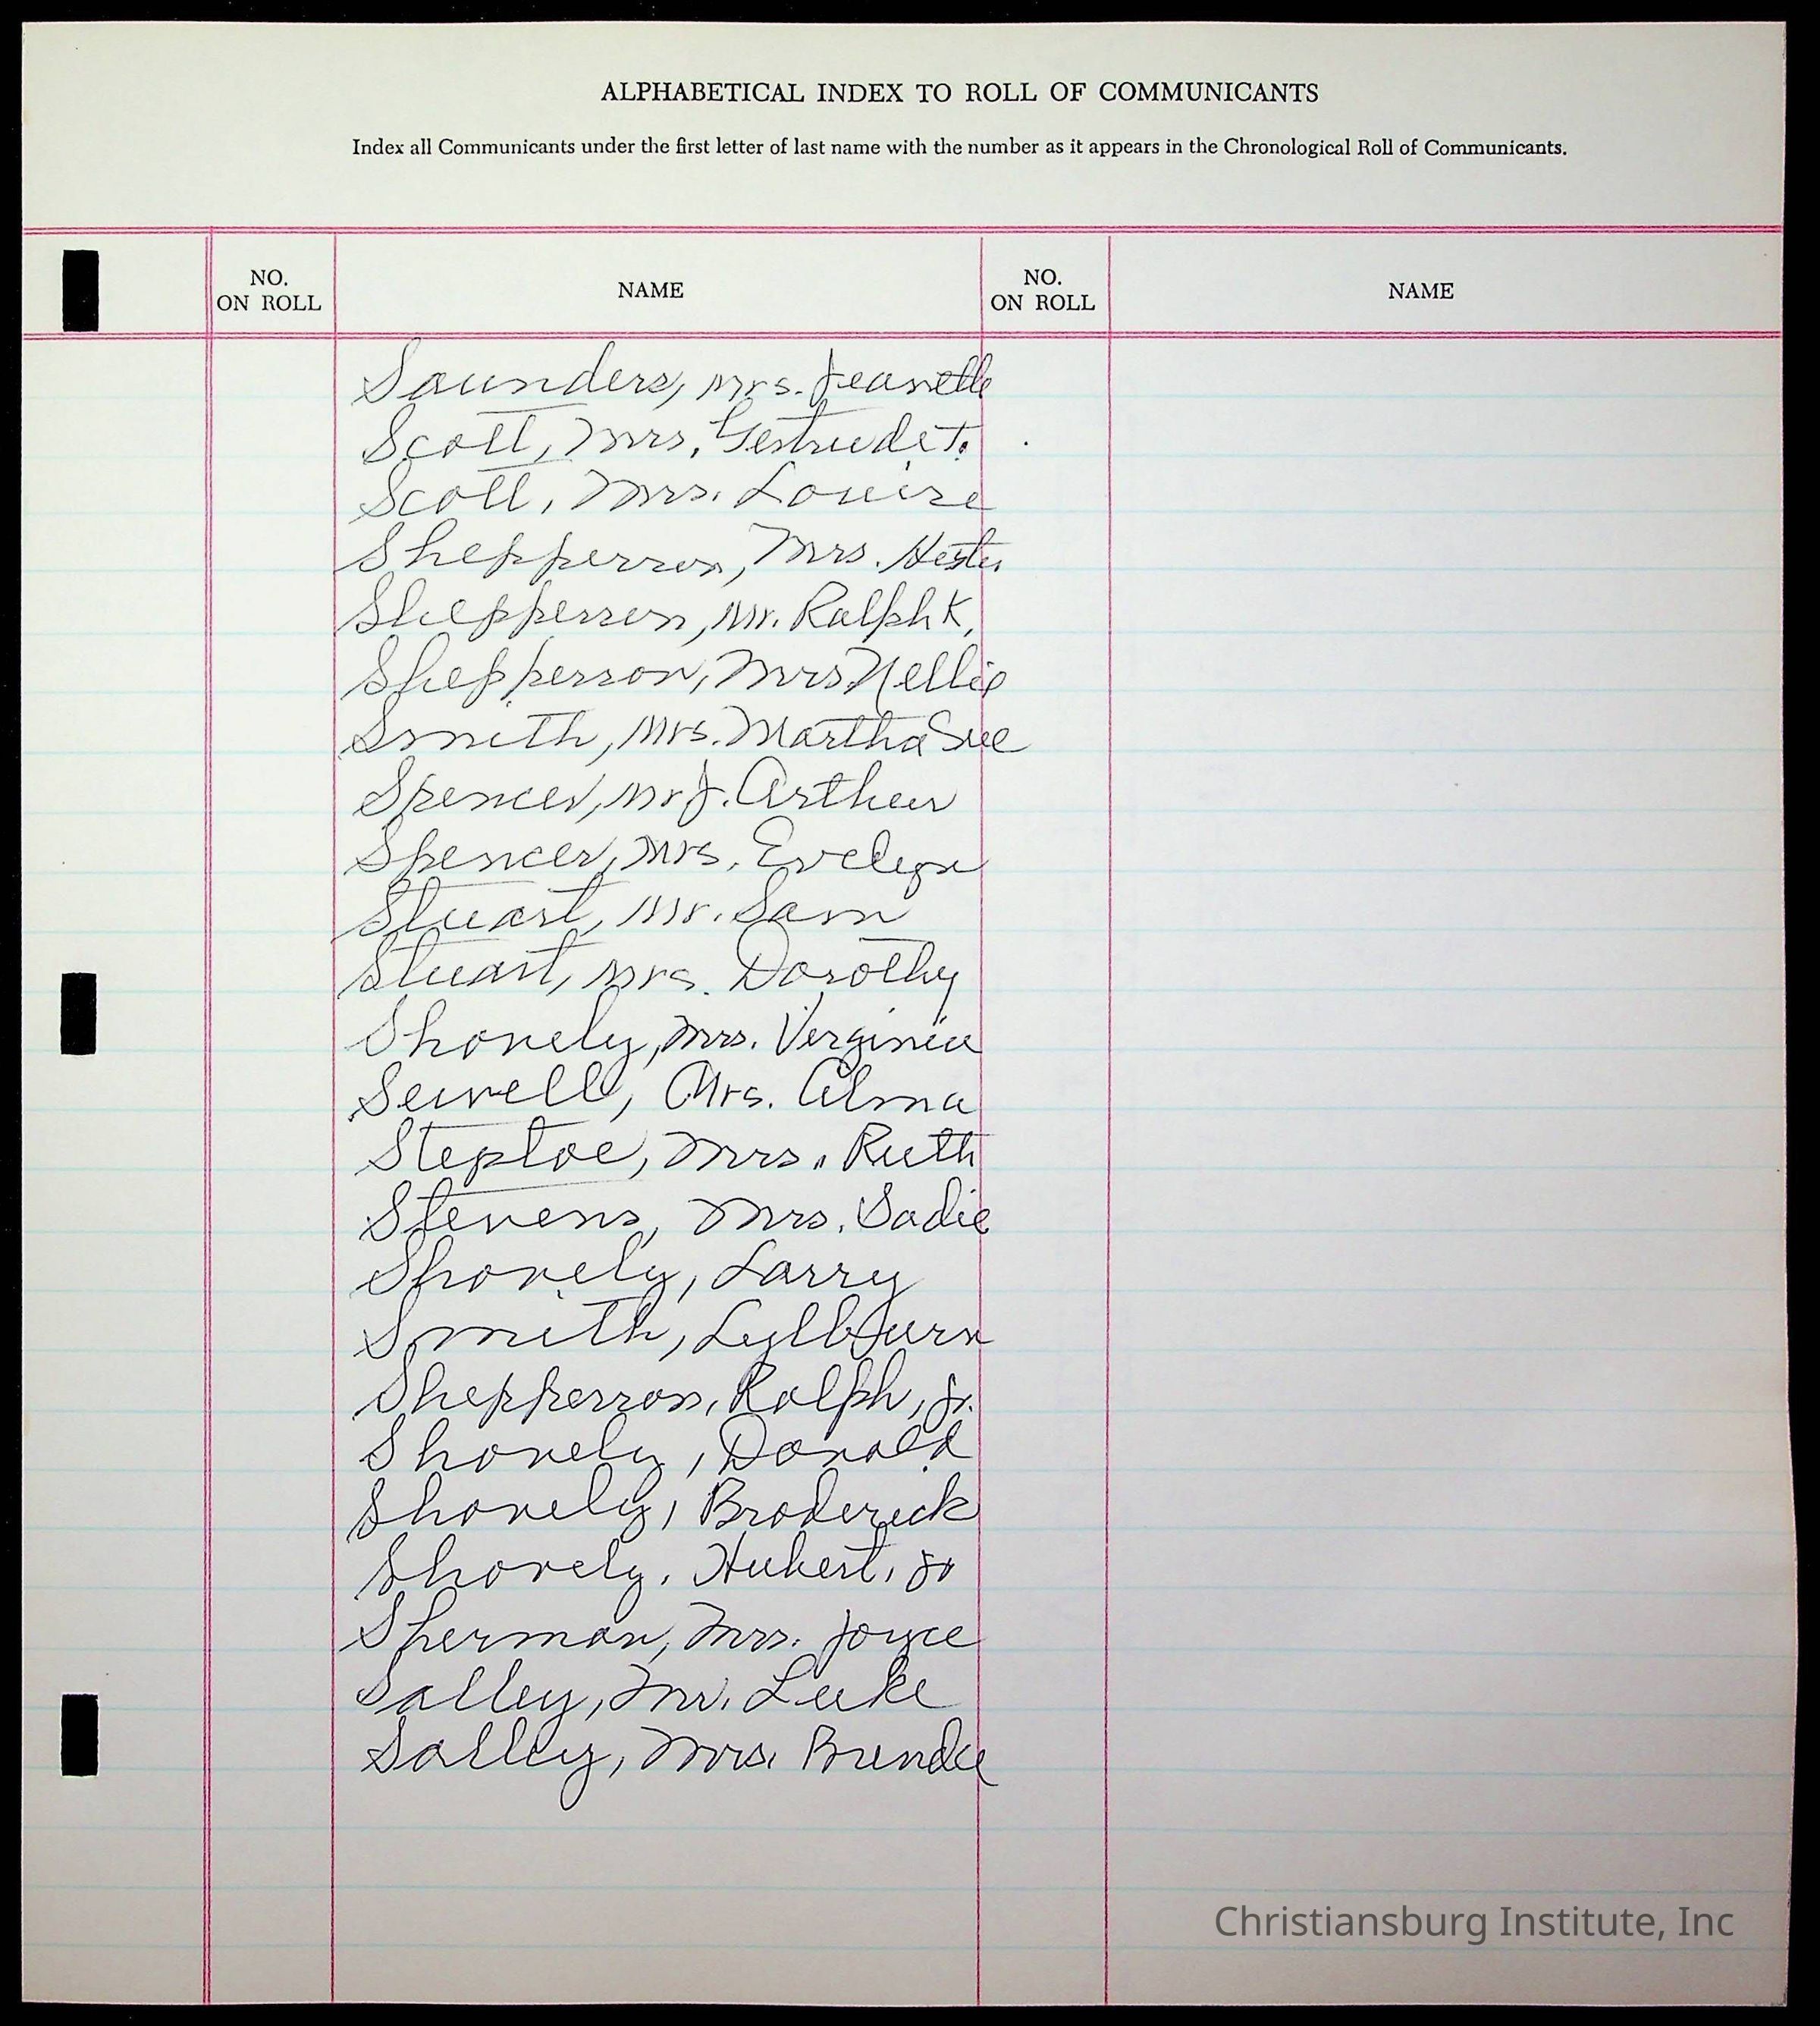 ALPHABETICAL INDEX TO ROLL OF COMMUNICANTS
Index all Communicants under the first letter of last name with the number as it appears in the Chronological Roll of Communicants.
NO. ON ROLL NAME NO. ON ROLL NAME
Saunders, Mrs. Jeanette
Scott, Mrs. Gertrude T.
Scott, Mrs. Louise
Shepperson, Mrs. Hester
Shepperson, Mr. Ralph K.
Shepperson, Mrs. Nellie
Smith, Mrs. Martha Sue
Spencer, Mr J. Arthur
Spencer, Mrs. Evelyn
Stuart, Mr. Sam
Stuart, Mrs. Dorothy
Shovely, Mrs. Verginia
Sewell, Mrs. Alma
Steptoe, Mrs. Ruth
Stevens, Mrs. Sadie
Shovely, Larry
Smith, Lylburn
Shepperson, Ralph, Jr.
Shovely, Donald
Shovely, Broderick
Shovely, Hubert, Jr
Sherman, Mrs. Joyce
Salley, Mr. Luke
Salley, Mrs. Brenda
Christiansburg Institute, Inc